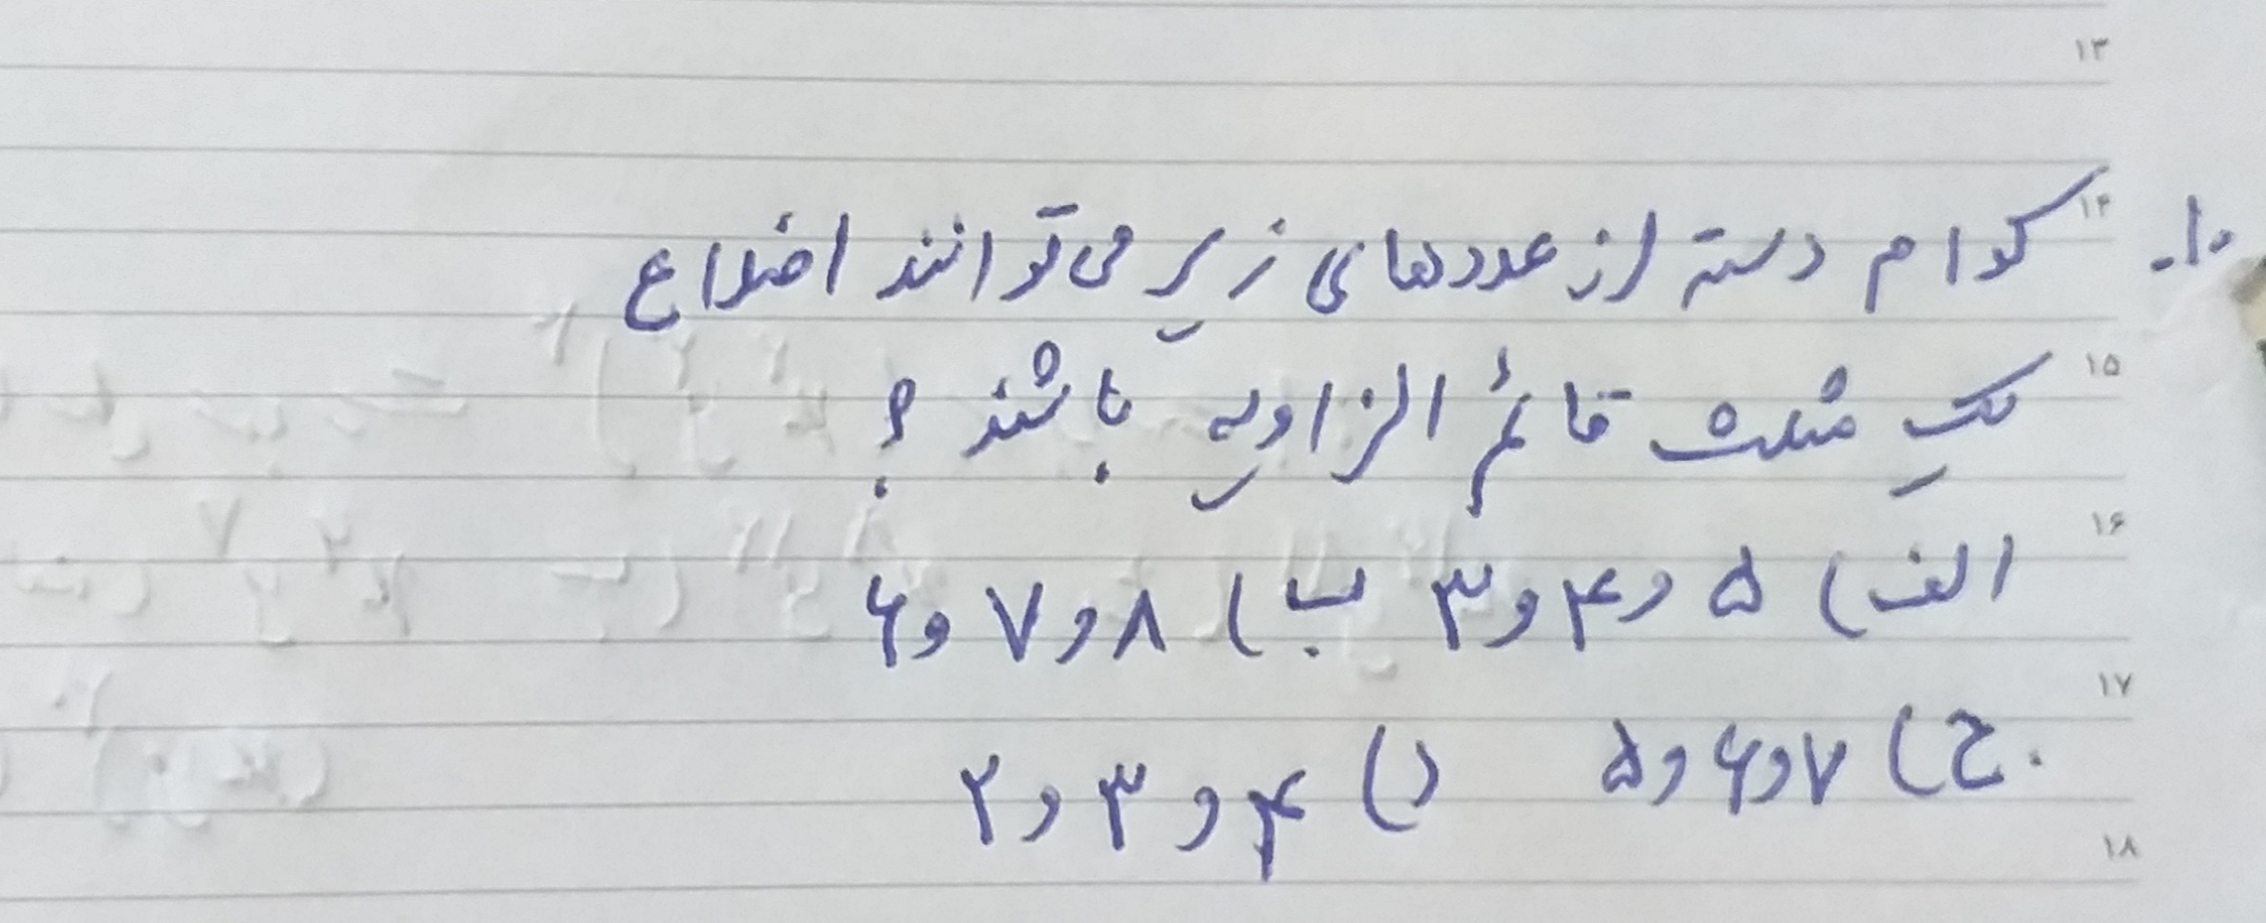 ۱۳
۱۴
۱۰. کدام دسته از عددهای زیر می‌توانند اضلاع
۱۵
یک مثلث قائم الزاویه باشند؟
۱۶
الف) ۵ و ۴ و ۳ ب) ۸ و ۷ و ۶
۱۷
ج) ۷ و ۶ و ۵ د) ۴ و ۳ و ۲
۱۸